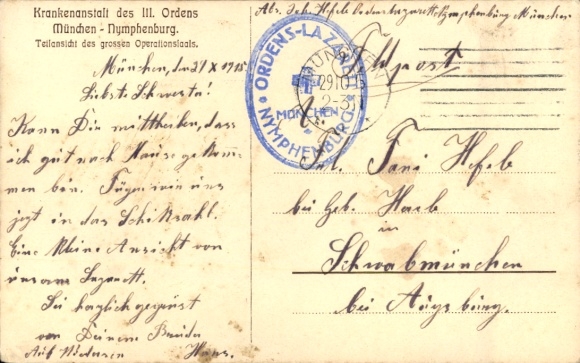 Krankenanstalt des III. Ordens
München - Nymphenburg.
Teilansicht des grossen Operationssaals.
München, den 29/X 1915
Liebste Schwester!
Kann Dir mittheilen, dass
ich gut nach Hause gekom-
men bin. Fügen wir uns
jezt in das Schiksahl.
Eine kleine Ansicht von
unserm Lazarett.
Sei herzlich gegrüsst
von Deinem Bruder
Auf Wiedersen Hans.
Abs. Joh. Hefele Ordenslazarett Nymphenburg München
Feldpost
ORDENS-LAZARETT
MÜNCHEN
NYMPHENBURG
MÜNCHEN
29.10
2-3
Frl. Fani Hefele
bei Geb. Haeb
in
Schwabmünchen
bei Augsburg.